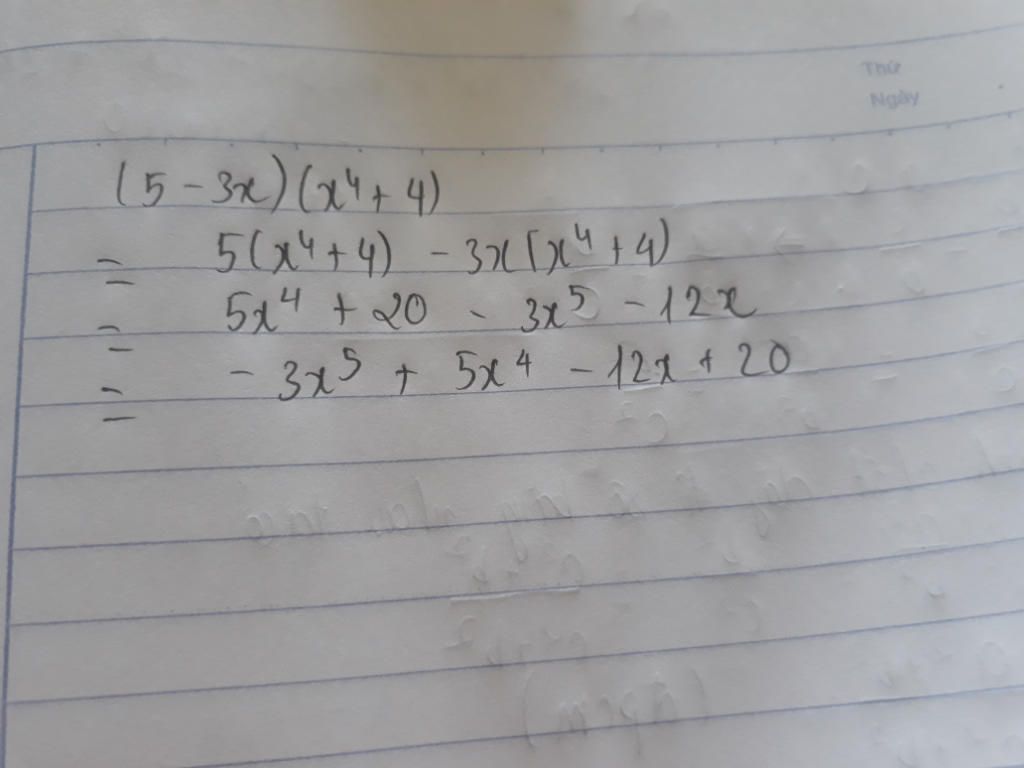 Thứ
Ngày
(5 - 3x)(x⁴ + 4)
= 5(x⁴ + 4) - 3x(x⁴ + 4)
= 5x⁴ + 20 - 3x⁵ - 12x
= - 3x⁵ + 5x⁴ - 12x + 20